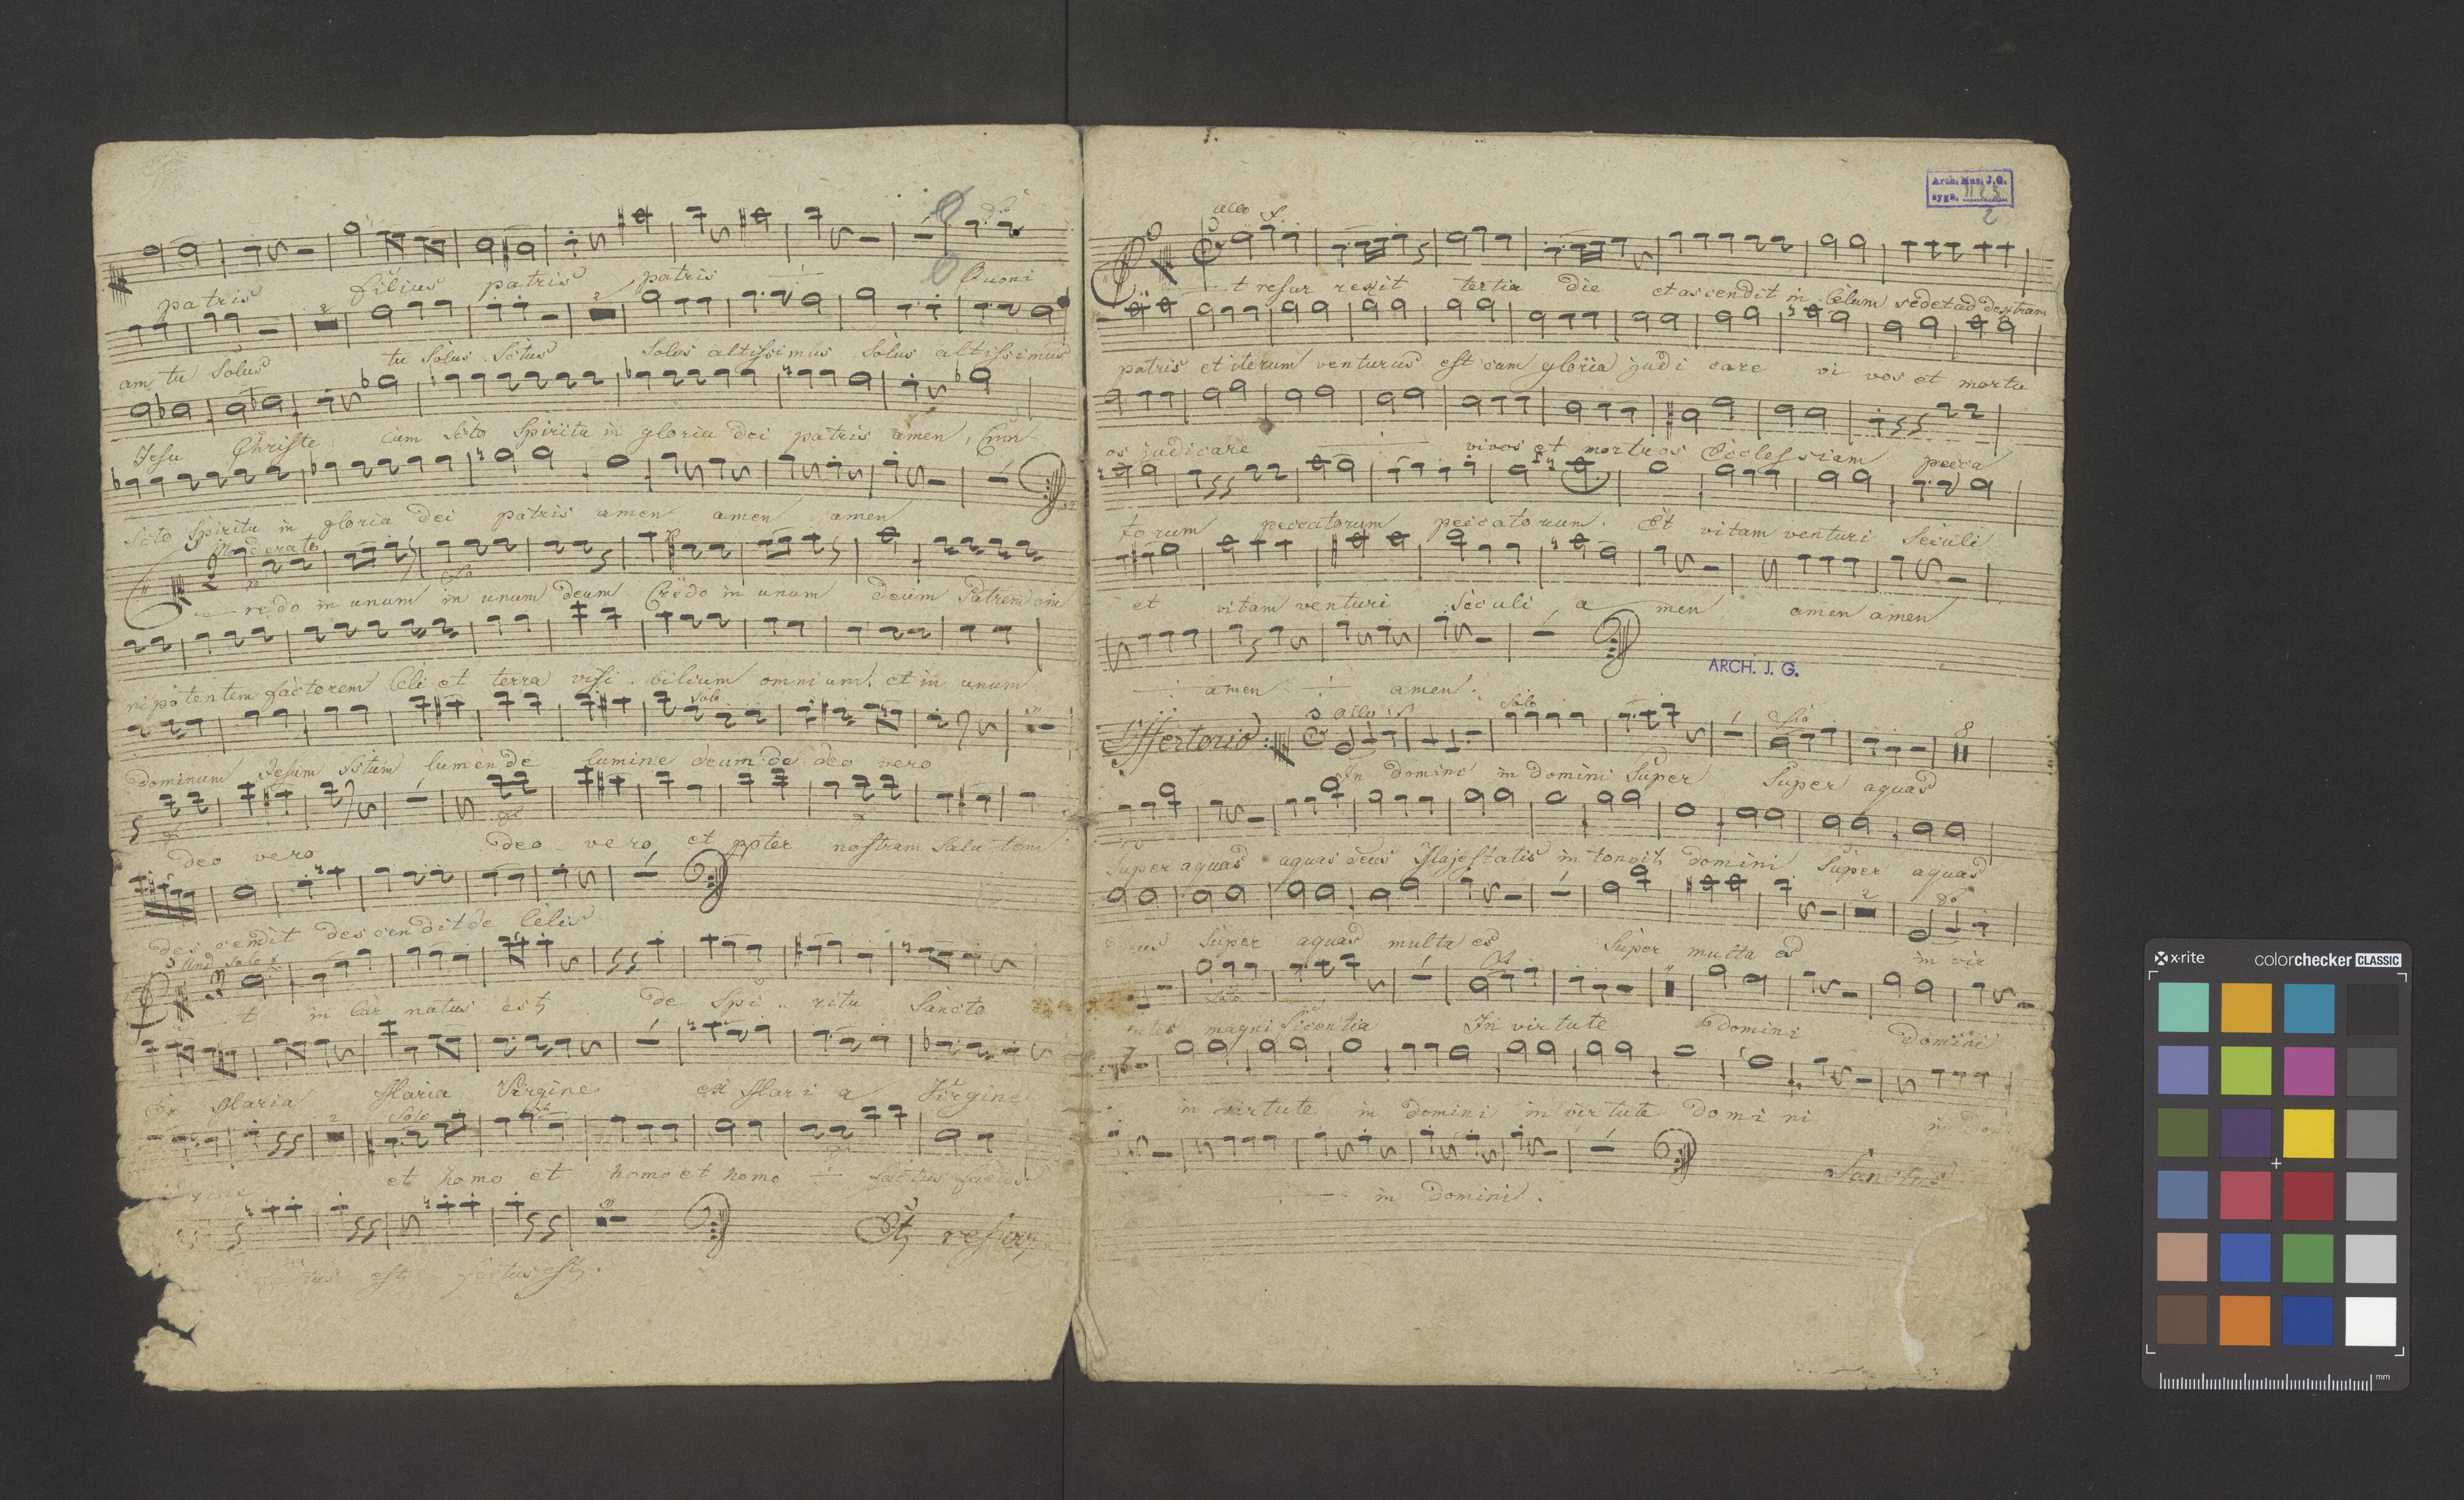 patris filius patris patris Quoni
2 2
am tu solus tu Solus Sctus Solus altissimus Solus altissimus
Jesu Christe cum Scto Spiritu in gloria dei patris amen, Cum
Scto Spiritu in gloria dei patris amen amen amen
moderato
Credo in unum in unum deum Credo in unum deum Patrem om
nipotentem factorem Celi et terra visi bilium omnium. et in unum
Solo
dominum Jesum Xstum lumen de lumine deum de deo vero
deo vero deo vero, et ppter nostram Salutem
descendit descendit de Celis
And. Solo
Et in Car natus est de Spi ritu Sancto
Ex Maria Maria Virgine ex Mari a Virgine
Solo 2
et homo et homo et homo factus factus
est factus est.
Et resurr
Arch. Muz. J.G.
sygn. 1125
2
allo f.
Et resur rexit tertia die et ascendit in Celum sedet ad dextram
patris et iterum venturus est cum gloria judi care vi vos et mortu
os judicare vivos et mortuos Ecclessiam pecca
torum peccatorum peccatorum. Et vitam venturi Seculi
et vitam venturi Seculi, a men amen amen
ARCH. J. G.
amen amen.
Offertorio: allo Solo 8
In domini in domini Super Super aquas
Super aquas aquas deus Majestatis in tonvit domini Super aquas
2
deus Super aquas multa es Super multa es in vir
Solo
tutes magni ficentia In virtute domini domini
in virtute in domini in virtute domini
in domini.
Sanctus
x-rite colorchecker CLASSIC
mm